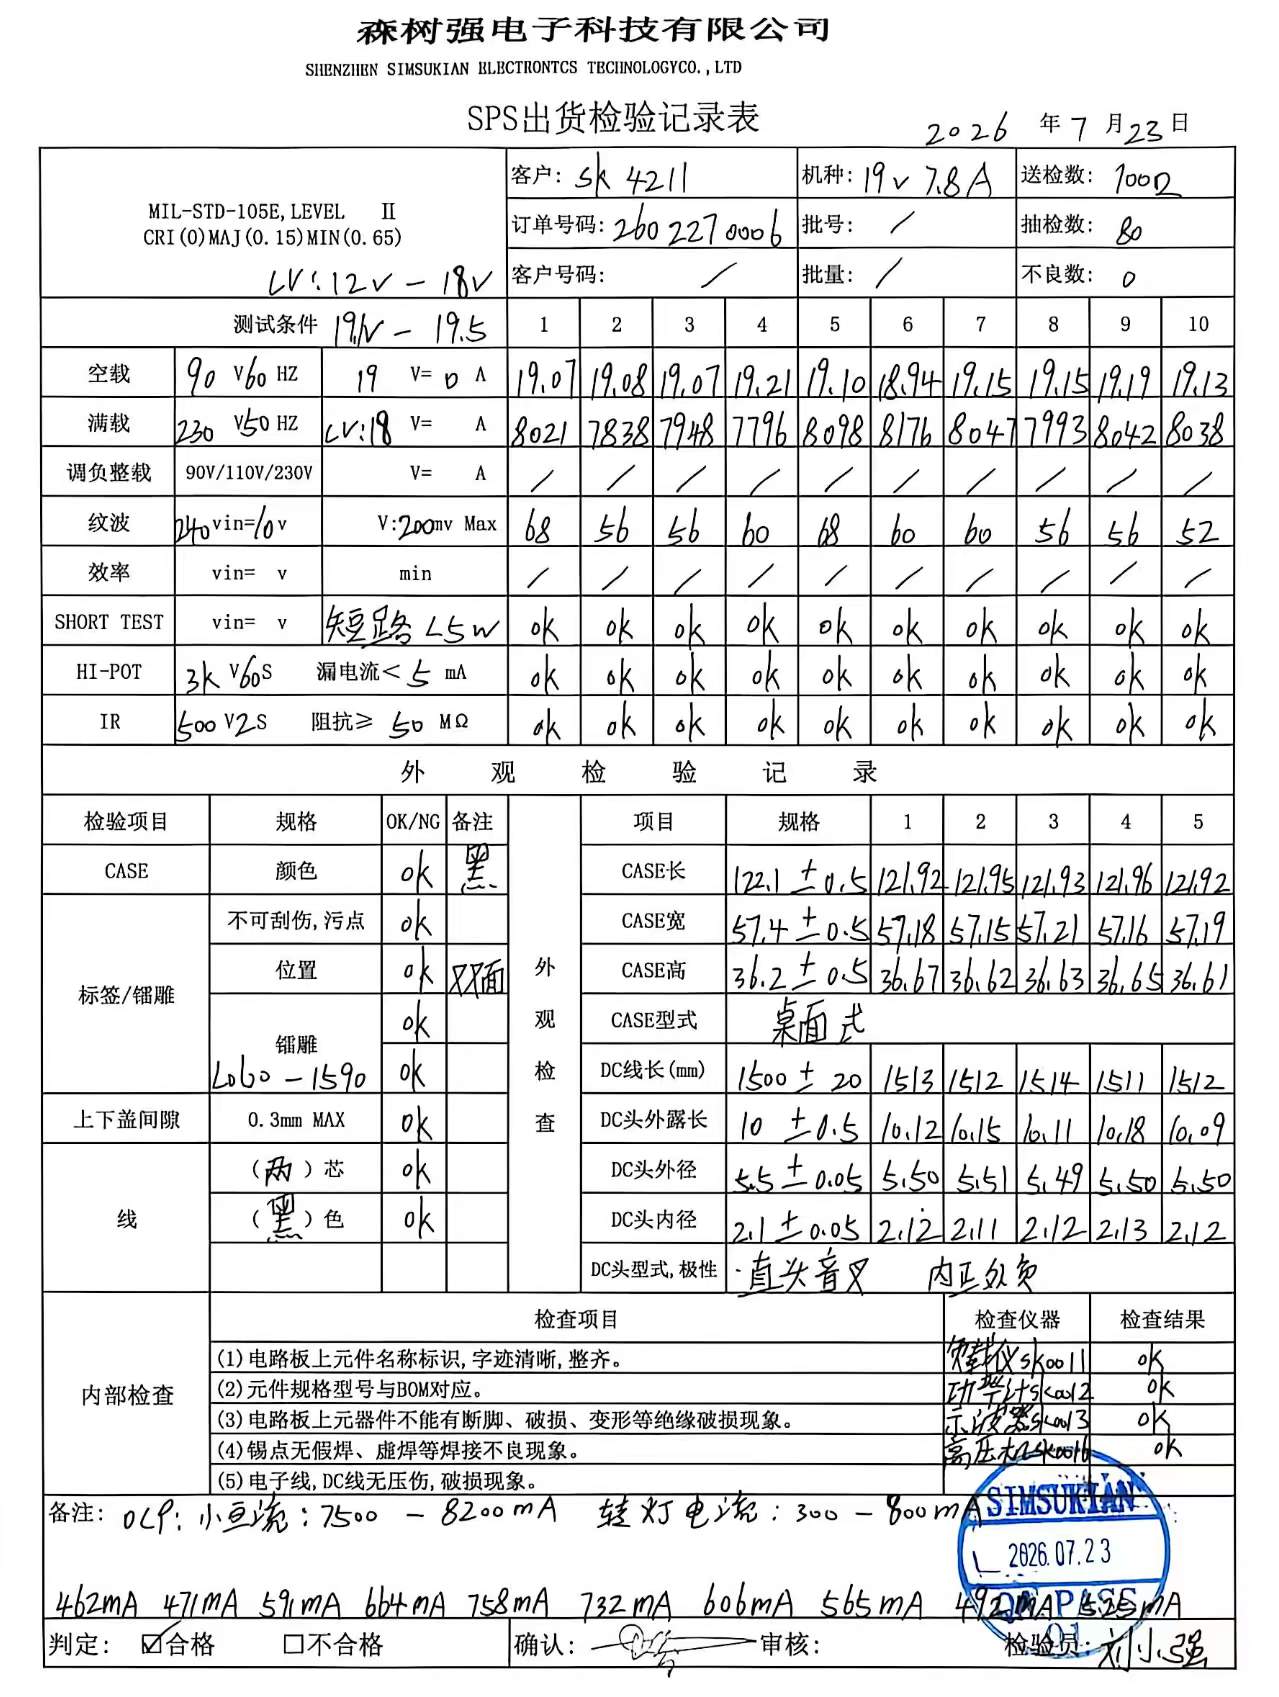 森树强电子科技有限公司
SHENZHEN SIMSUKIAN ELECTRONTCS TECHNOLOGYCO.,LTD
SPS出货检验记录表
2026 年 7 月 23 日
MIL-STD-105E,LEVEL Ⅱ
CRI(0)MAJ(0.15)MIN(0.65)
LV:12V - 18V
客户: SK 4211 机种: 19V 7.8A 送检数:
订单号码: 2602270006 批号: / 抽检数: 80
客户号码: / 批量: / 不良数: 0
测试条件 19.1V - 19.5 1 2 3 4 5 6 7 8 9 10
空载 90 V 60 HZ 19 V= 0 A 19.07 19.08 19.07 19.21 19.10 18.94 19.15 19.15 19.19 19.13
满载 230 V 50 HZ LV:18 V= A 8021 7838 7948 7796 8098 8176 8047 7993 8042 8038
调负整载 90V/110V/230V V= A / / / / / / / / / /
纹波 240 vin=10 v V:200mv Max 68 56 56 60 68 60 60 56 56 52
效率 vin= v min / / / / / / / / / /
SHORT TEST vin= v 短路 <5W ok ok ok ok ok ok ok ok ok ok
HI-POT 3K V 60S 漏电流< 5 mA ok ok ok ok ok ok ok ok ok ok
IR 500 V 2S 阻抗≥ 50 MΩ ok ok ok ok ok ok ok ok ok ok
外观检验记录
检验项目 规格 OK/NG 备注 外观检查 项目 规格 1 2 3 4 5
CASE 颜色 ok 黑 CASE长 122.1 ±0.5 121.92 121.95 121.93 121.96 121.92
标签/镭雕 不可刮伤,污点 ok CASE宽 57.4 ±0.5 57.18 57.15 57.21 57.16 57.19
位置 ok 双面 CASE高 36.2 ±0.5 36.67 36.62 36.63 36.65 36.61
镭雕 ok CASE型式 桌面式
L060-1590 ok DC线长(mm) 1500 ± 20 1513 1512 1514 1511 1512
上下盖间隙 0.3mm MAX ok DC头外露长 10 ±0.5 10.12 10.15 10.11 10.18 10.09
线 (两)芯 ok DC头外径 5.5 ±0.05 5.50 5.51 5.49 5.50 5.50
(黑)色 ok DC头内径 2.1 ±0.05 2.12 2.11 2.12 2.13 2.12
DC头型式,极性 直头音叉 内正外负
内部检查 检查项目 检查仪器 检查结果
(1)电路板上元件名称标识,字迹清晰,整齐。 SK0011 ok
(2)元件规格型号与BOM对应。 功率计SK0012 ok
(3)电路板上元器件不能有断脚、破损、变形等绝缘破损现象。 示波器SK0013 ok
(4)锡点无假焊、虚焊等焊接不良现象。 高压机SK0016 ok
(5)电子线,DC线无压伤,破损现象。
备注: OCP:小恒流:7500 - 8200mA 转灯电流:300 - 800mA
SIMSUKIAN
2026.07.23
462mA 471mA 591mA 664mA 758mA 732mA 606mA 565mA 492mA 525mA
QC PASS
01
判定: ☑合格 □不合格 确认: 审核: 检验员: 刘小强